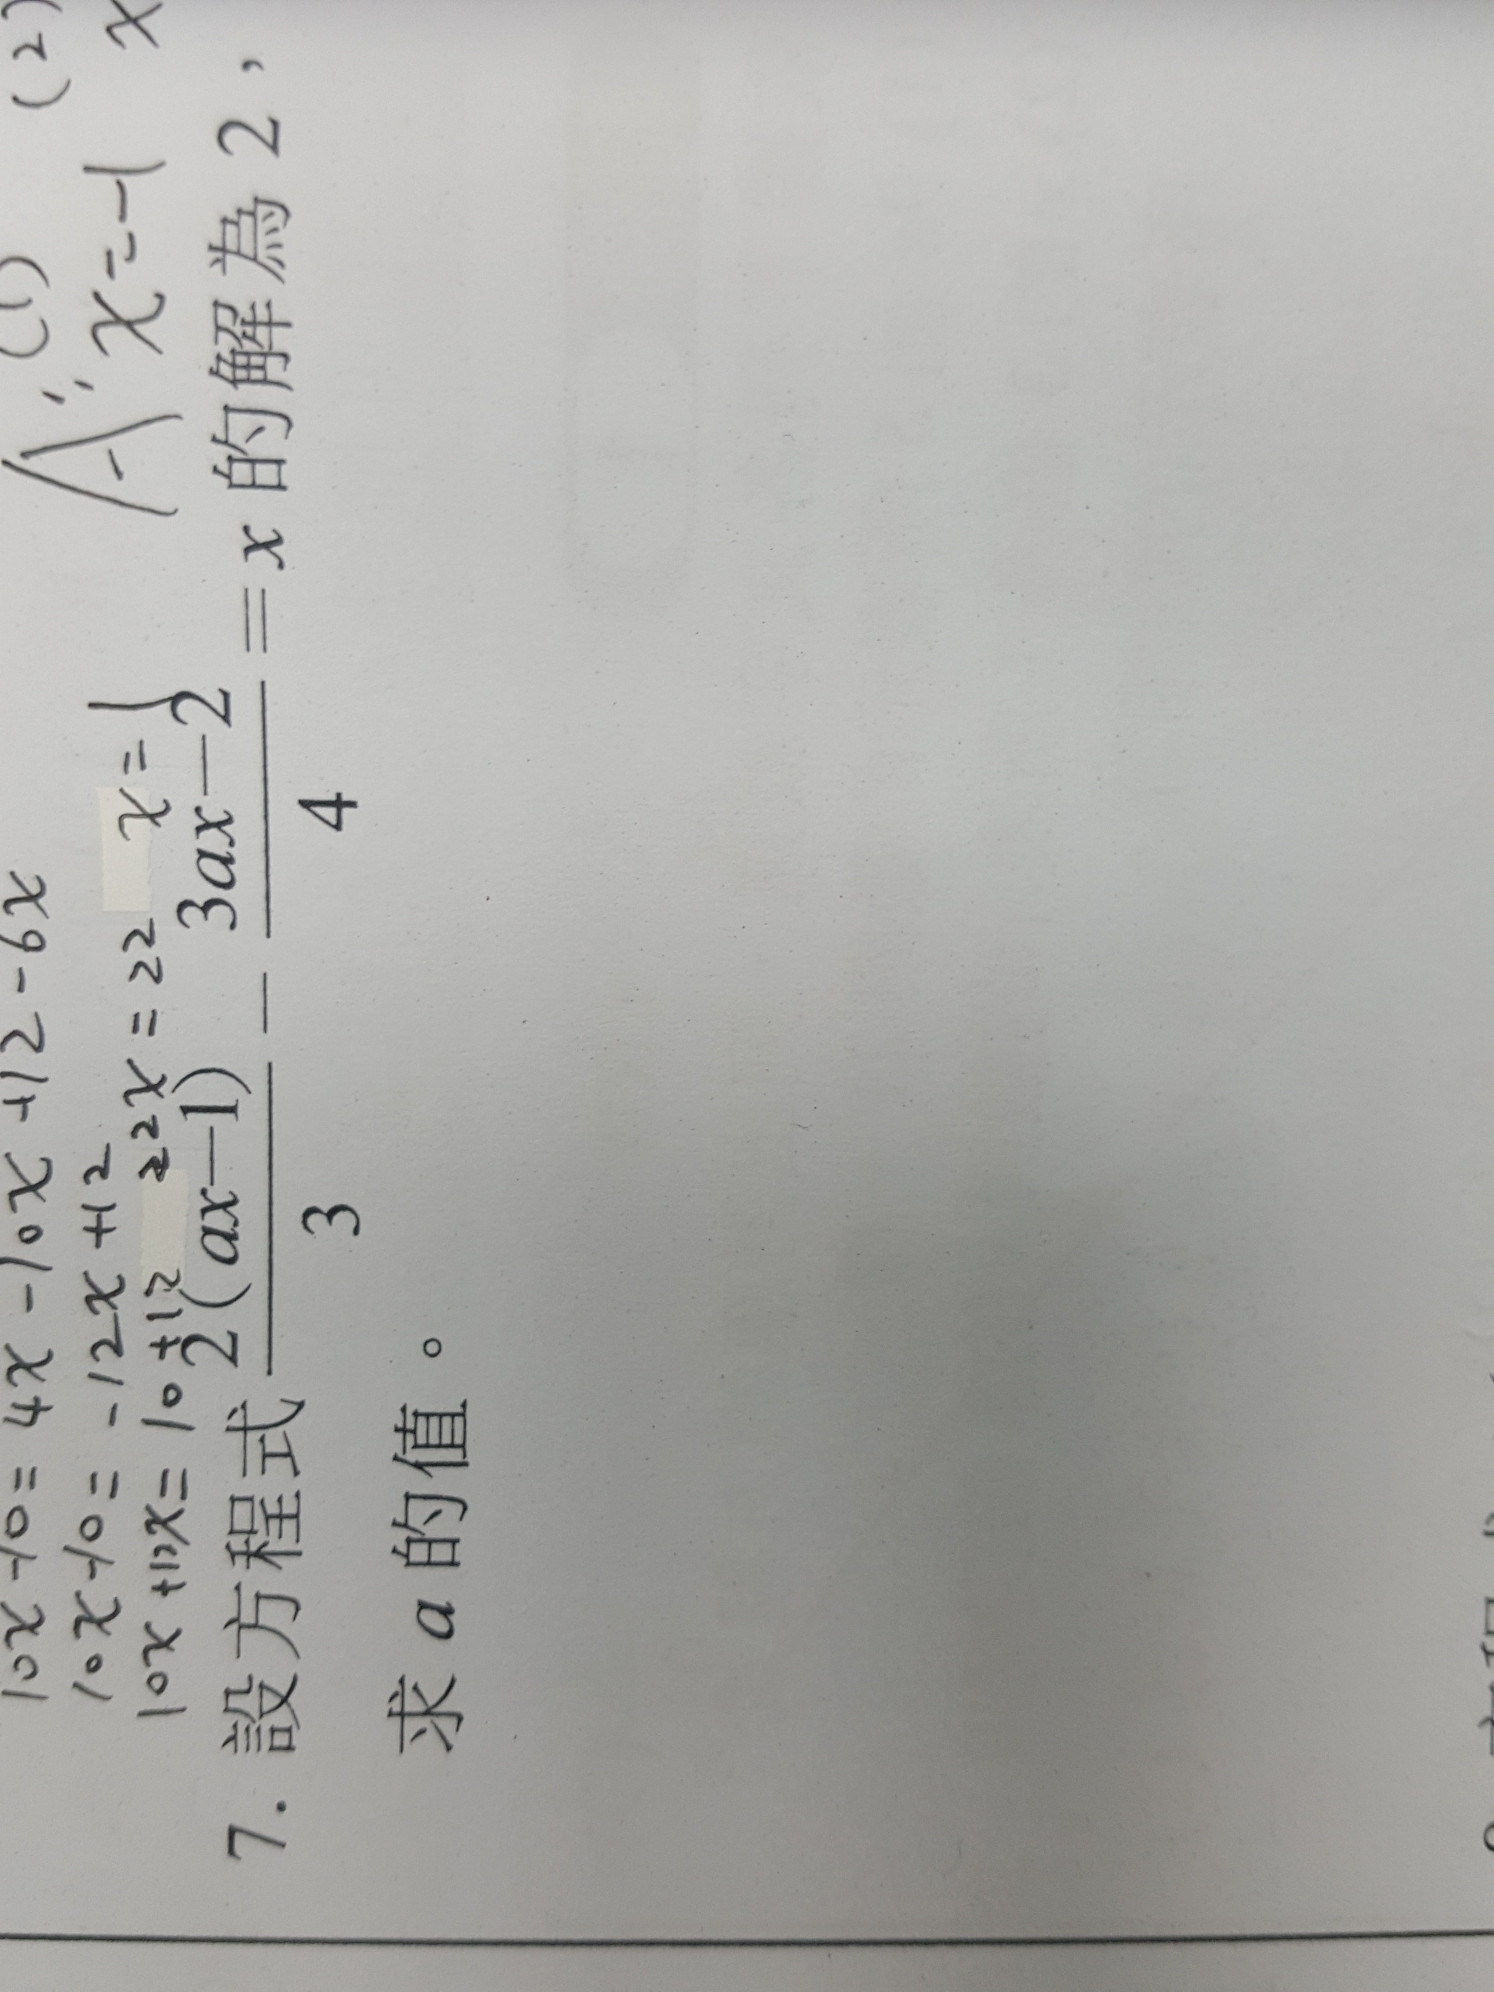 (1) (2)
10x-10=4x-10x+12-6x
A: x=-1 x
10x-10=-12x+12
10x+12x=10+12 22x=22 x=1
7. 設方程式 2(ax-1)/3 - 3ax-2/4 = x 的解為 2，
求 a 的值。